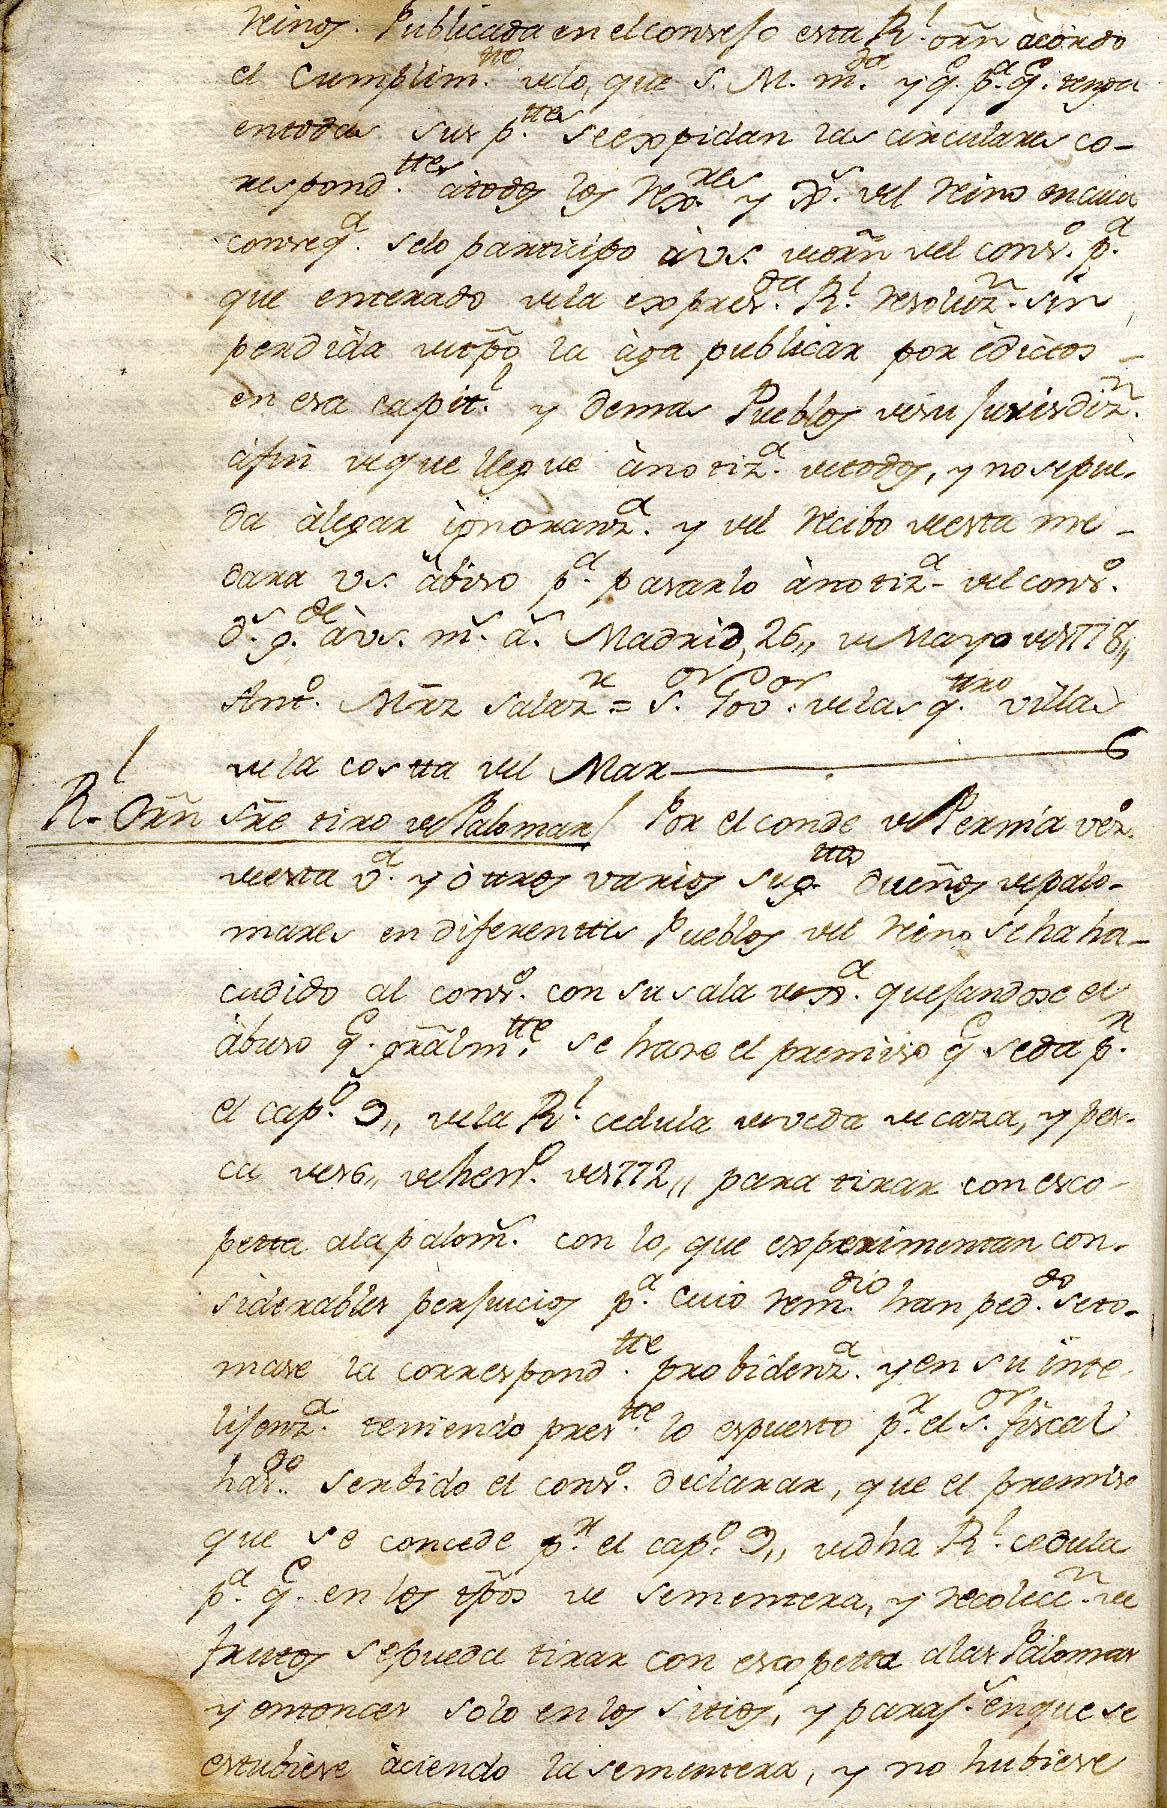 Reinos. Publicada en el consejo esta Rl. orñ acordo
el Cumplim.tto de lo, que S. M. m.da y q.e p.a q.e tenga
en todas sus p.ttes se expidan las circulares co-
rrespond.ttes à todos los Rex.res y Jx.s del Reino en cuia
conseq.a se lo participo à vs. de orñ del cons.o p.a
que enterado de la expres.da Rl. resoluz.n sin
perdida de tpõ la àga publicar por èdictos -
en esa capit.l y demas Pueblos de su Jurisdiz.n
àfin de que llegue à notiz.a de todos, y no se pue-
da àlegar ignoranz.a y del recibo de esta me -
dara vs. àbiso p.a pasarlo à notiz.a del cons.o
D.s g.de à vs. m.s a.s Madrid, 26,, de Mayo de 1778,,
Ant.o Mrz Salaz.r = S.or Gov.or de las q.tro villas
de la costta del Mar
Rl. Orñ sre tiro de Palomas / Por el conde de Pernia vez.o
de esta v.a y òttros varios sug.ttos dueños de palo-
mares en diferenttes Pueblos del Reino se ha ha-
cudido al cons.o con su sala de Jx.a quejandose el
àbuso q.e grãlm.tte se hase el premiso q.e se da p.r
el cap.o 9,, de la Rl. cedula de veda de caza, y pes-
ca de 16,, de hen.o de 1772,, para tirar con esco-
petta a la palom.s con lo, que experimentan con-
siderables perjuicios p.a cuio rem.dio han ped.do se to-
mase la correspond.tte probidenz.a y en su inte-
lijenz.a teniendo pres.tte lo espuesto p.r el S.or fiscal
has.do sentido el cons.o declarar, que el premiso
que se concede p.r el cap.o 9,, de dha Rl. cedula
p.a q.e en los tpõs de sementera, y recolecc.n de
fruttos se pueda tirar con escopetta a las Palomas
y entonces solo en los sitios, y paraj.s en que se
estubiese àciendo la sementera, y no hubiese